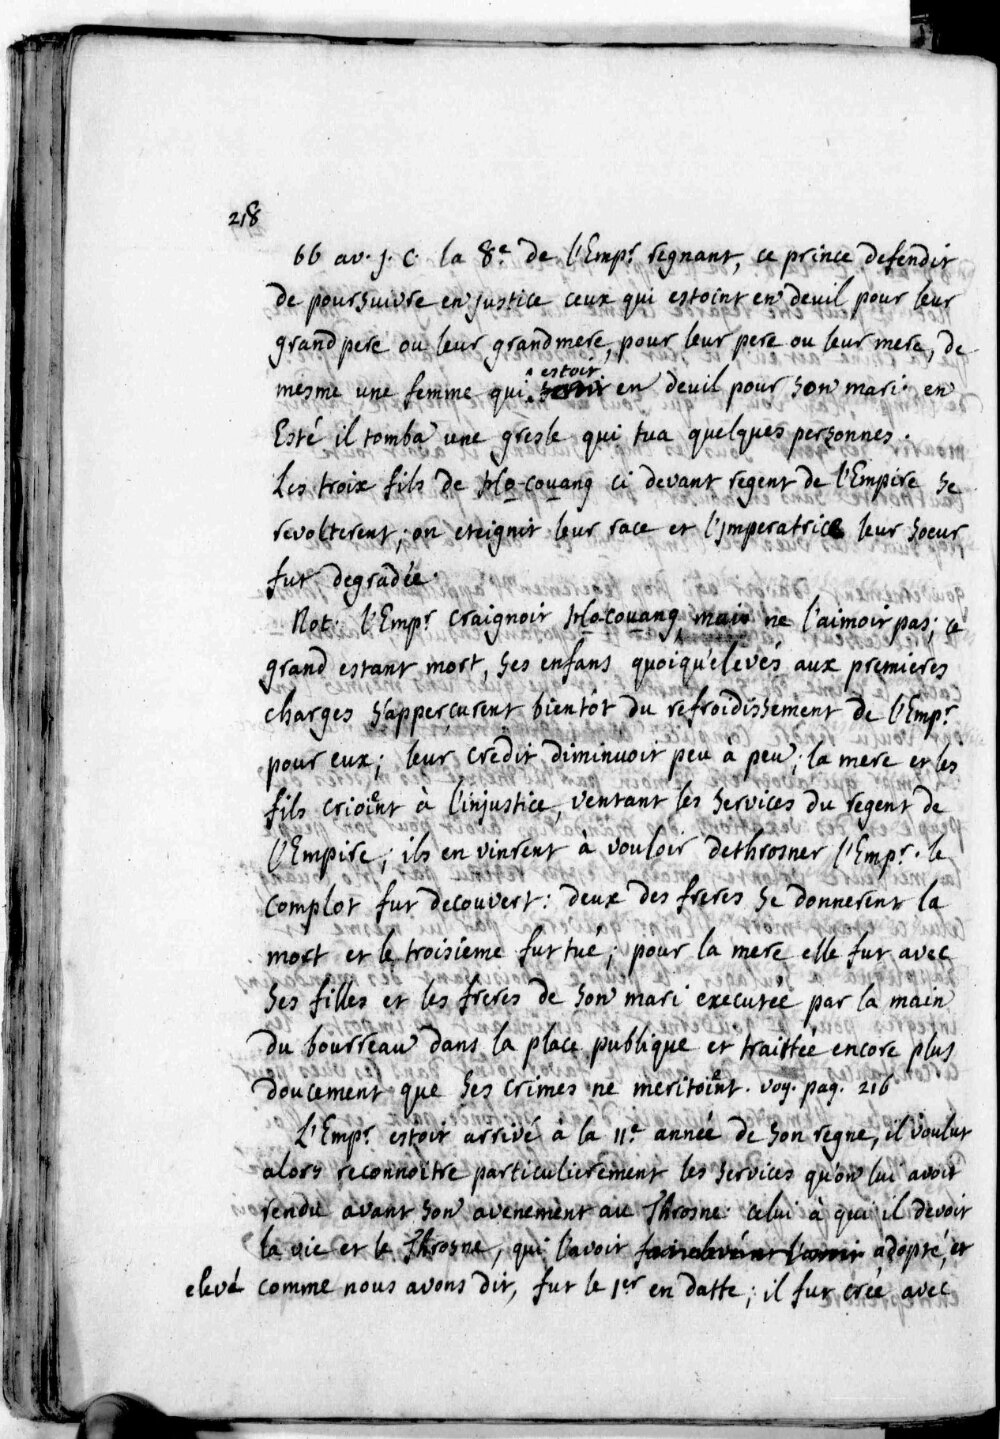 218
66 av. J. C. la 8.e de l'Emp.r regnant, ce prince defendit
de poursuivre en justice ceux qui estoint en deuil pour leur
grandpere ou leur grandmere, pour leur pere ou leur mere, de
mesme une femme qui estoit en deuil pour son mari. en
Esté il tomba une gresle qui tua quelques personnes.
Les troix fils de Ho-couang ci devant regent de l'Empire se
revolterent; on eteignit leur race et l'jmperatrice leur soeur
fut degradée.
Not: l'Emp.r craignoit Ho-couang, mais ne l'aimoit pas; ce
grand estant mort, ses enfans quoiqu'elevés aux premieres
charges s'appercurent bientôt du refroidissement de l'Emp.r
pour eux; leur credit diminuoit peu a peu; la mere et les
fils crioient à l'injustice, ventant les services du regent de
l'Empire; ils en vinrent à vouloir dethrosner l'Emp.r. le
complot fut decouvert: deux des freres se donnerent la
mort et le troisieme fut tué; pour la mere elle fut avec
ses filles et les freres de son mari executée par la main
du bourreau dans la place publique et traittée encore plus
doucement que ses crimes ne meritoient. voy. pag. 216
L'Emp.r estoit arrivé à la 11.e année de son regne, il voulut
alors reconnoitre particulierement les services qu'on lui avoit
rendu avant son avenement au Throsne: celui à qui il devoit
la vie et le Throsne, qui l'avoit adopté, et
elevé comme nous avons dit, fut le 1er en datte; il fut créé avec